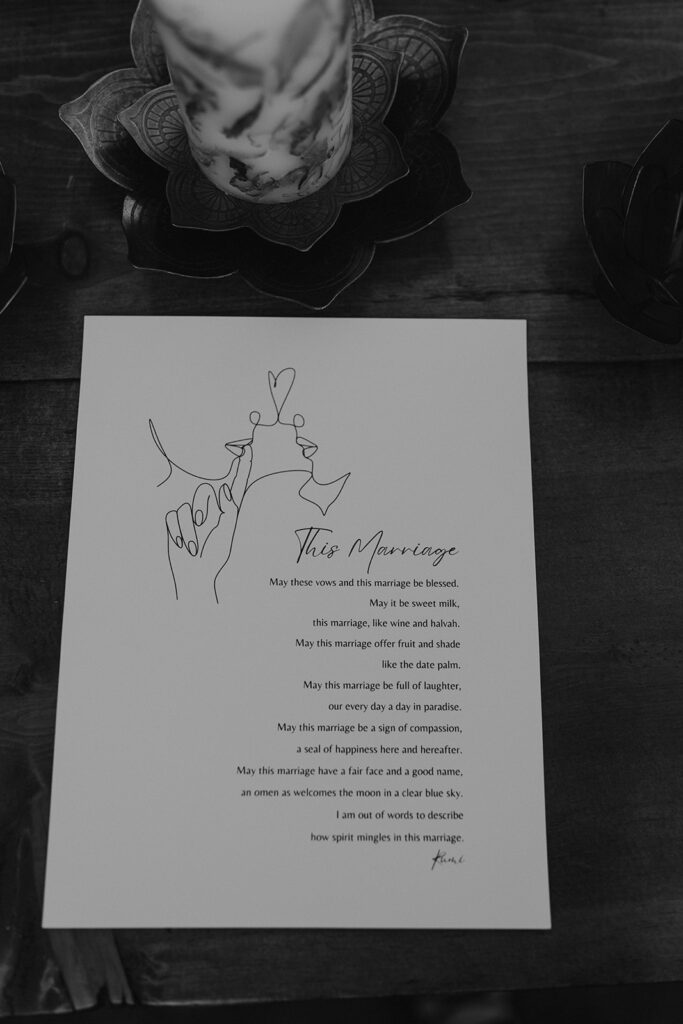 This Marriage
May these vows and this marriage be blessed.
May it be sweet milk,
this marriage, like wine and halvah.
May this marriage offer fruit and shade
like the date palm.
May this marriage be full of laughter,
our every day a day in paradise.
May this marriage be a sign of compassion,
a seal of happiness here and hereafter.
May this marriage have a fair face and a good name,
an omen as welcomes the moon in a clear blue sky.
I am out of words to describe
how spirit mingles in this marriage.
Rumi